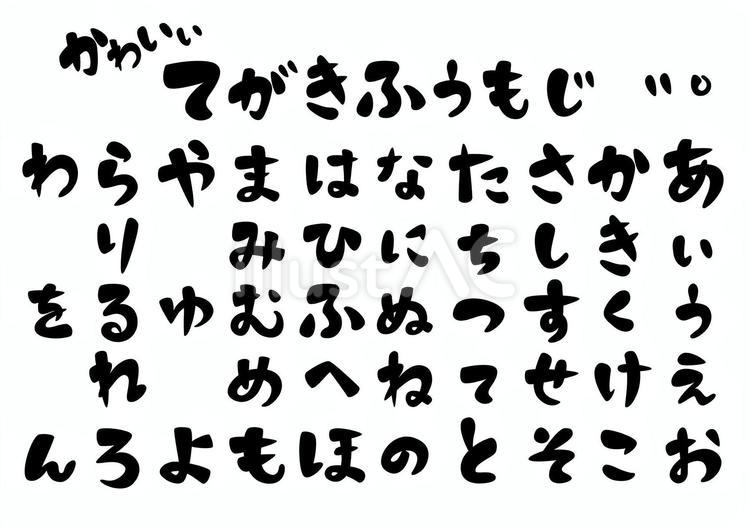 かわいい
てがきふうもじ ゛゜
わらやまはなたさかあ
りみひにちしきい
をるゆむふぬつすくう
れめへねてせけえ
んろよもほのとそこお
illustAC